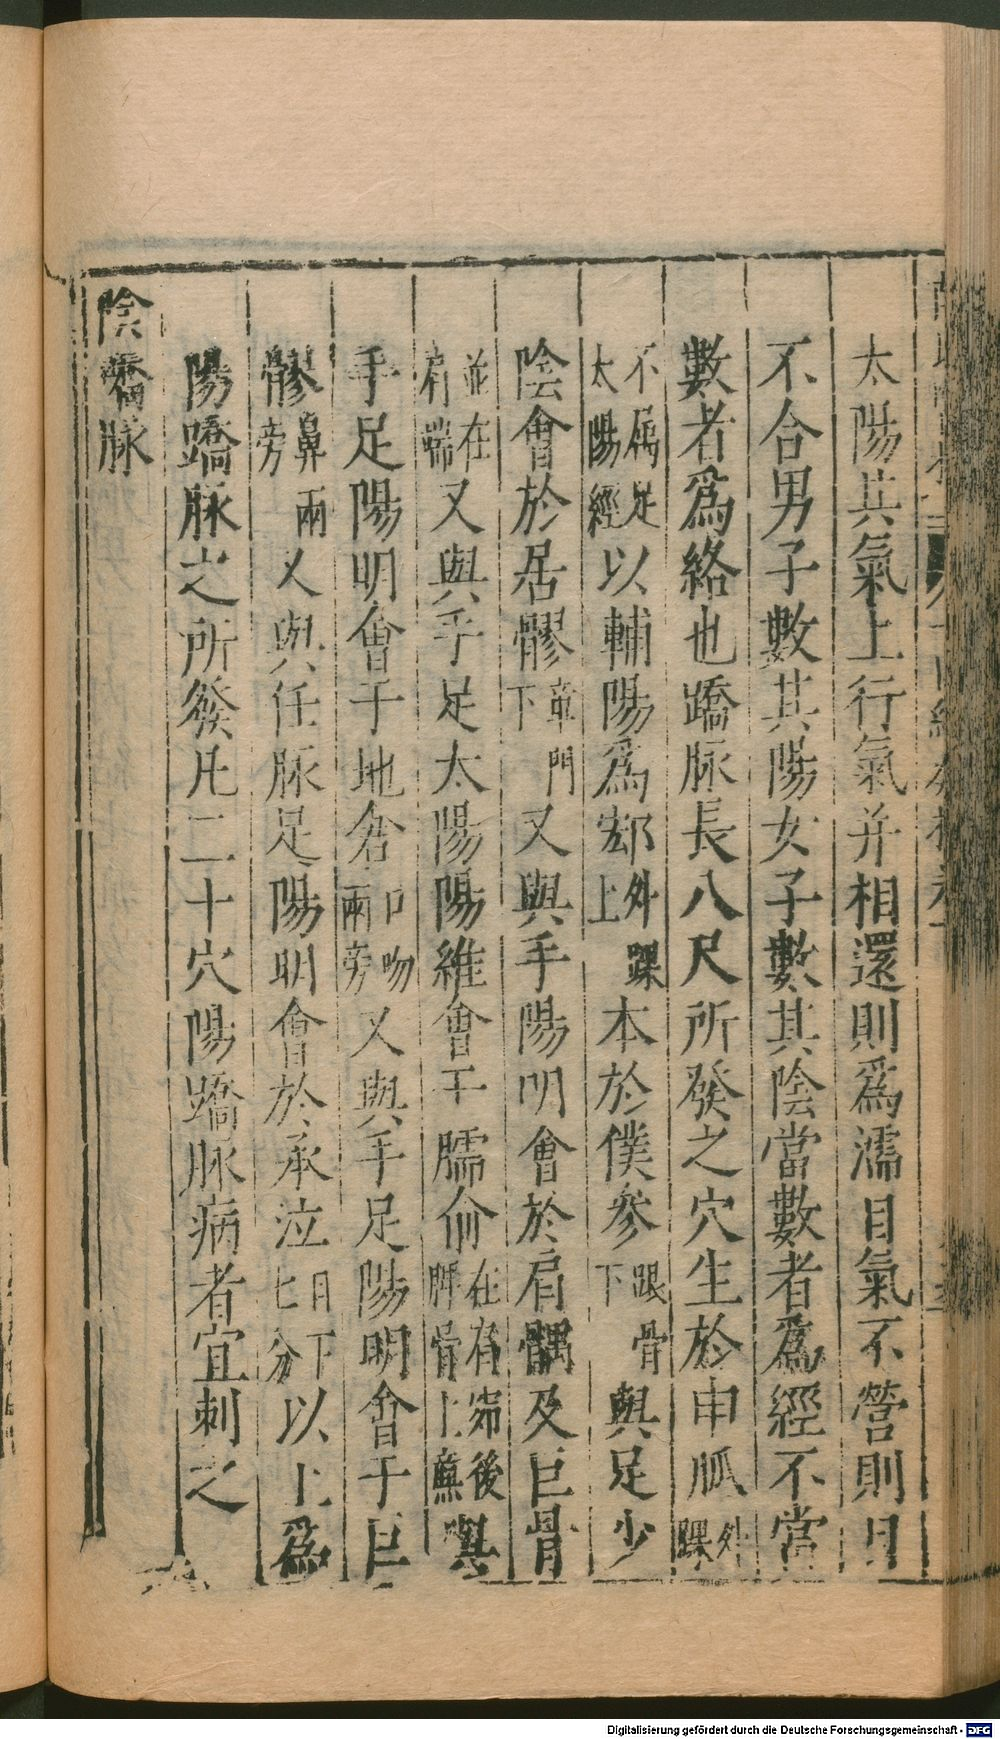 太陽其氣上行氣并相還則爲濡目氣不營則目
不合男子數其陽女子數其陰當數者爲經不當
數者爲絡也蹻脉長八尺所發之穴生於申脉外踝
不屬足太陽經以輔陽爲郄外踝上本於僕參跟骨下與足少
陰會於居髎章門下又與手陽明會於肩髃及巨骨
並在肩端又與手足太陽陽維會于臑俞在肩後胛骨上與
手足陽明會于地倉口吻兩旁又與手足陽明會于巨
髎鼻兩旁又與任脉足陽明會於承泣目下七分以上爲
陽蹻脉之所發凡二十穴陽蹻脉病者宜刺之
陰蹻脉
Digitalisierung gefördert durch die Deutsche Forschungsgemeinschaft - DFG